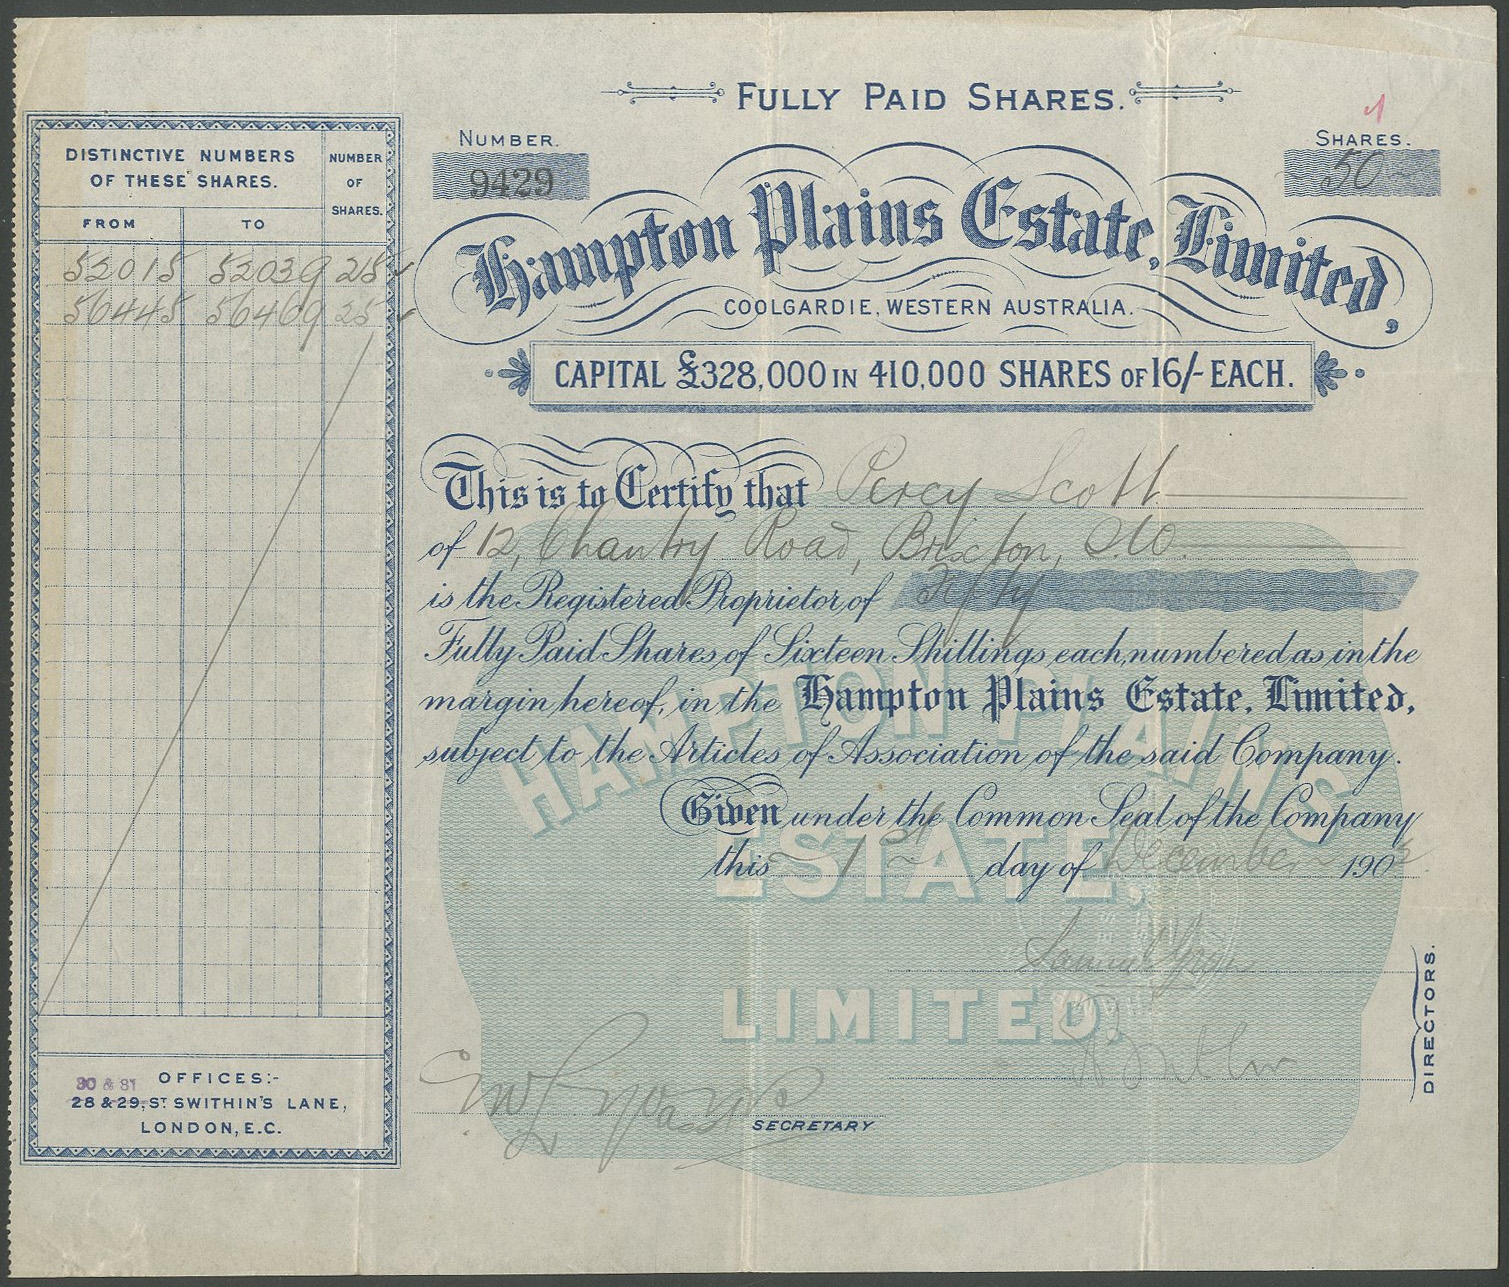 FULLY PAID SHARES.
NUMBER.
9429
SHARES.
50
Hampton Plains Estate, Limited,
COOLGARDIE, WESTERN AUSTRALIA.
CAPITAL £328,000 IN 410,000 SHARES OF 16/- EACH.
DISTINCTIVE NUMBERS OF THESE SHARES.
NUMBER OF SHARES.
FROM TO
52015 52039 25
56445 56469 25
This is to Certify that Percy Scott
of 12, Chantry Road, Brixton, S.W.
is the Registered Proprietor of Fifty
Fully Paid Shares of Sixteen Shillings each, numbered as in the
margin hereof, in the Hampton Plains Estate, Limited,
subject to the Articles of Association of the said Company.
Given under the Common Seal of the Company
this 1st day of December 190
HAMPTON PLAINS
ESTATE,
LIMITED.
Samuel
DIRECTORS.
SECRETARY
OFFICES:-
30 & 31
28 & 29, ST SWITHIN'S LANE,
LONDON, E.C.